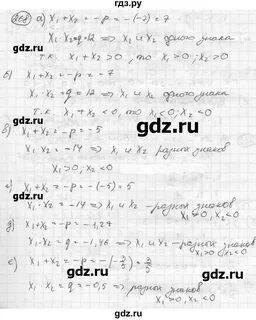 а) x₁+x₂ = -p = -(-7) = 7
x₁·x₂=q=12 => x₁ и x₂ одного знака
т.к. x₁+x₂>0, то x₁>0; x₂>0
б) x₁+x₂ = -p = -7
x₁·x₂ = q = 12 => x₁ и x₂ одного знака
т.к. x₁+x₂<0, то x₁<0; x₂<0
x₁+x₂ = -p = -5
x₁·x₂ = -14 => x₁ и x₂ разных знаков
x₁>0; x₂<0
x₁+x₂ = -p = -(-5) = 5
x₁·x₂ = -14 => x₁ и x₂ - разных знаков
x₂<0
д) x₁+x₂ = -p = -1,27
x₁·x₂ = q = -1,46 => x₁ и x₂ - разных знаков
x₁>0; x₂<0
е) x₁+x₂ = -p = -(-3/5) = 3/5
x₁·x₂ = q = -0,5 => разных знаков
x₁>0, x₂<0
gdz.ru
gdz.ru
gdz.ru
gdz.ru
gdz.ru
gdz.ru
gdz.ru
gdz.ru